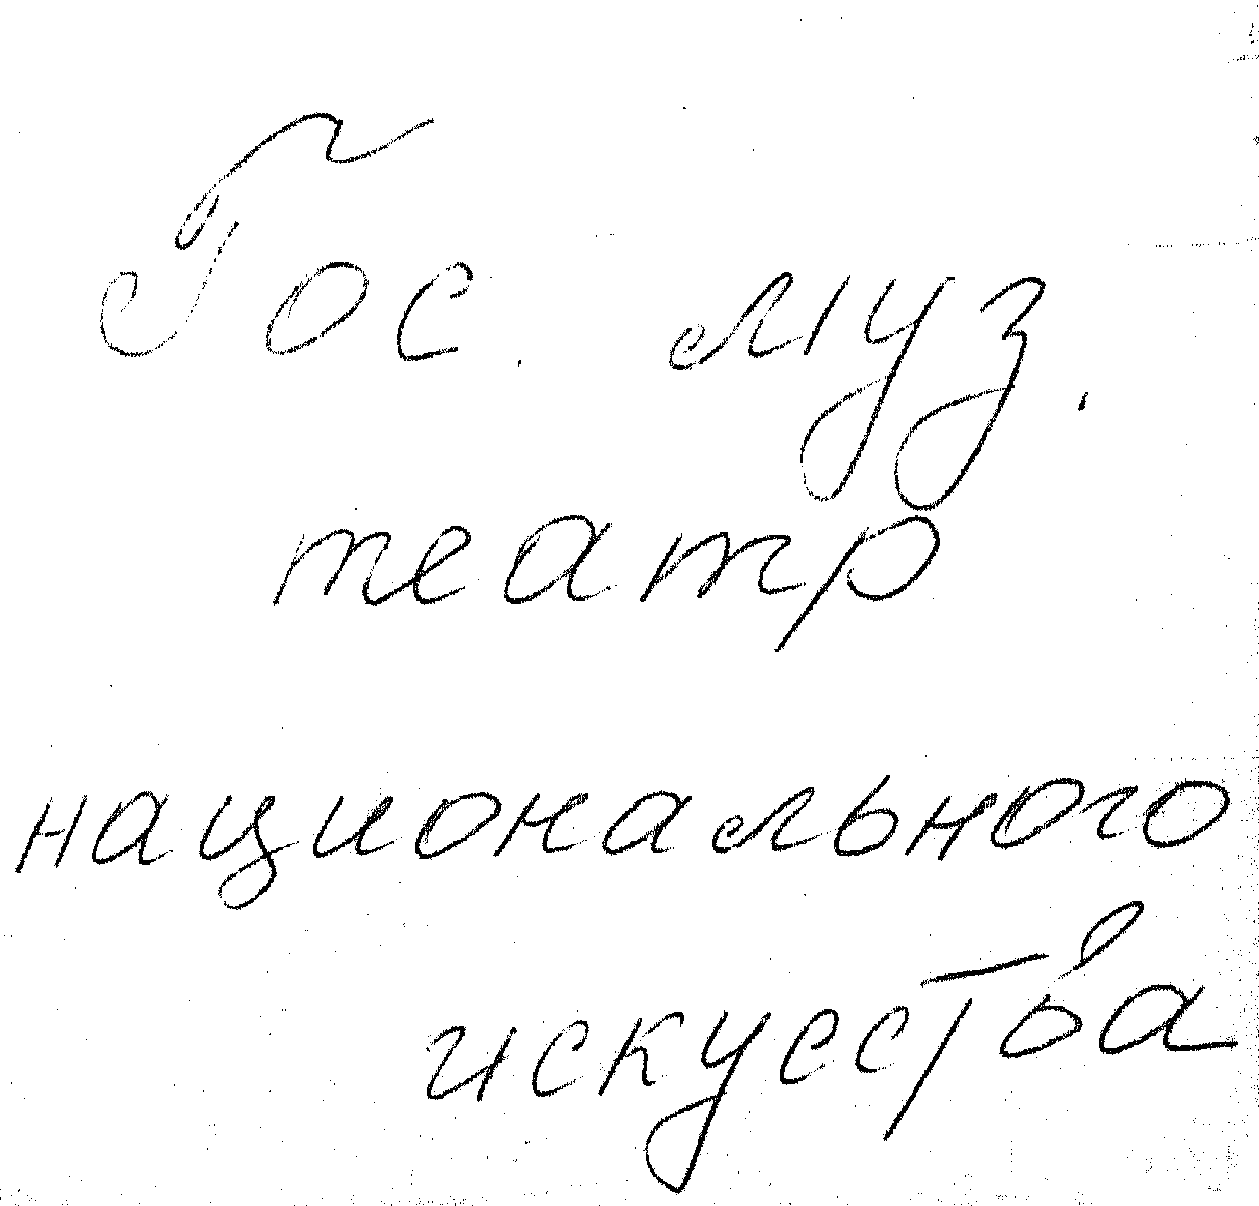 Гос. муз.
театр
национального
искусства